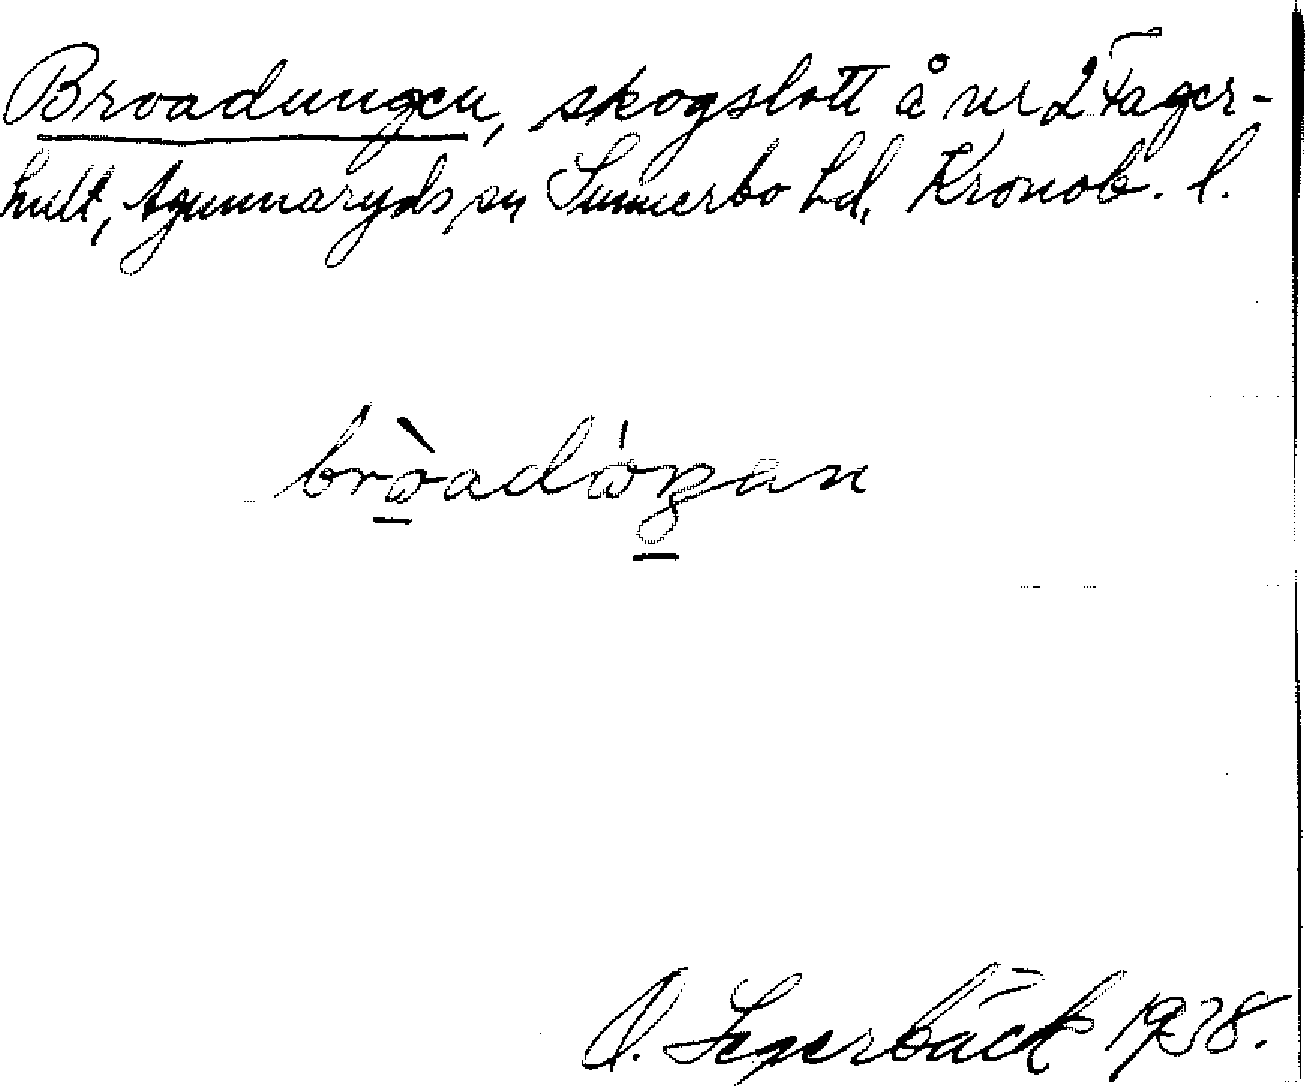 Broadungen, skogslott å nr 2 Fager-
hult, Agunnaryds sn Sunnerbo hd, Kronob. l.
bròadóŋan
O. Segerbäck 1938.